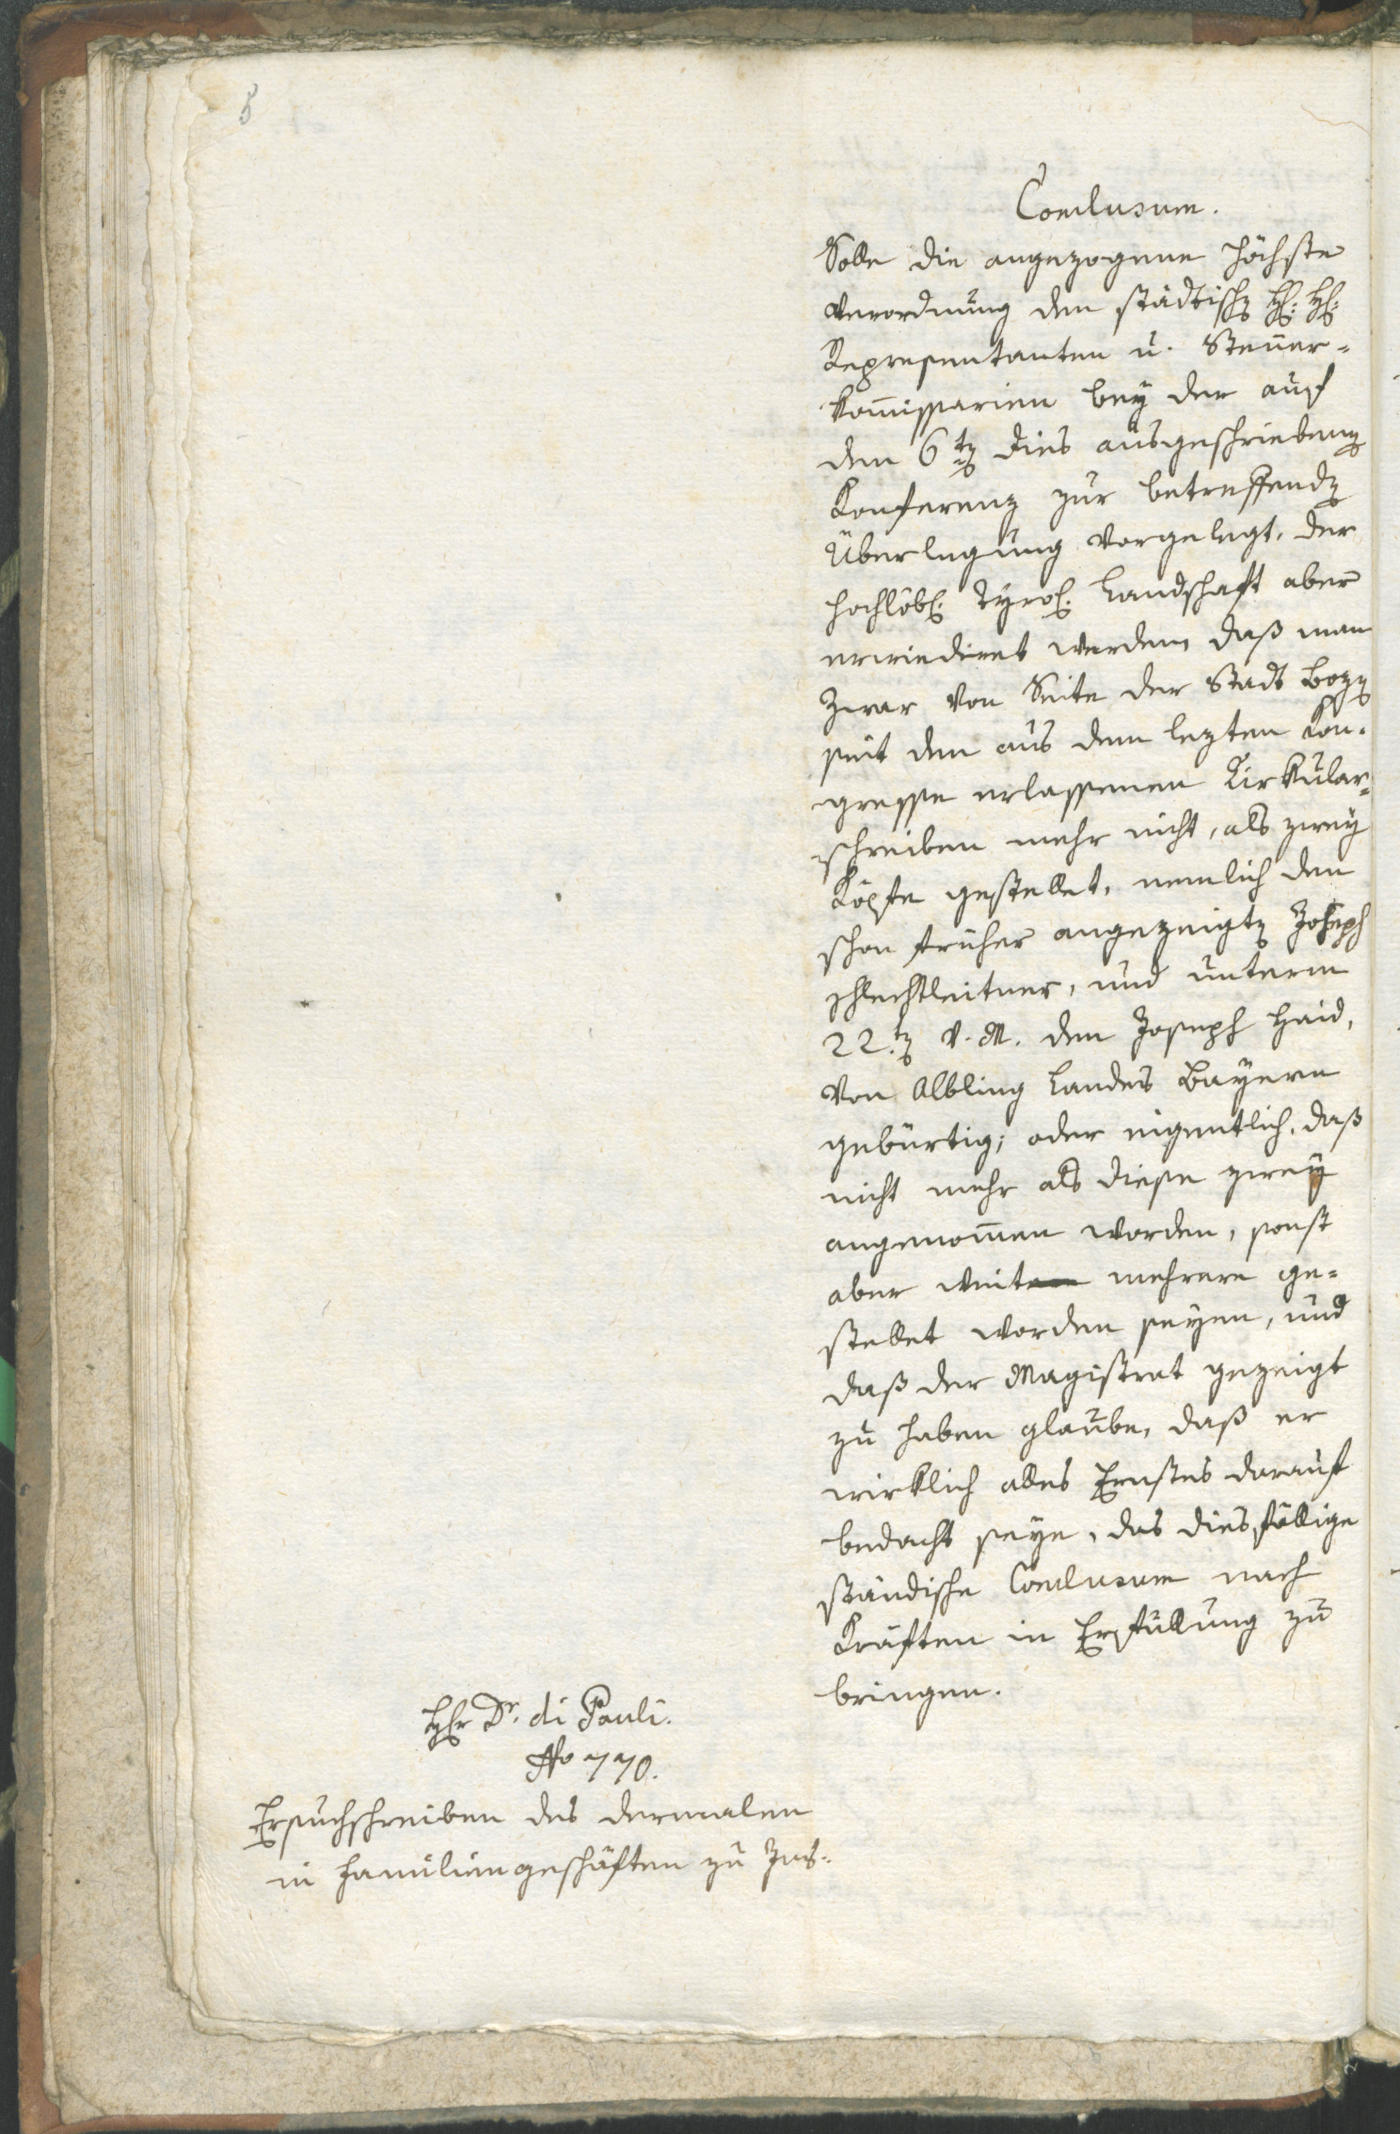 8
Conclusum.
Solle die angezogene höchste
Verordnung den städtisch[en] H: H:
Representanten u. Steuer=
kom̅issarien bey der auf
den 6ten dies ausgeschrieben[en]
Konferenz zur betreffend[en]
Überlegung vorgelegt, der
hochlöbl. Tyrol. Landschaft aber
erwiedert werden, daß man
zwar von Seite der Stadt Boz[en]
seit dem aus dem lezten Kon=
gresse erlassenen Cirkular=
schreiben mehr nicht, als zwey
Köpfe gestellet, nemlich den
schon früher angezeigt[en] Joseph
Schlechtleitner, und unterm
22.ten v. M. den Joseph Haid,
von Albling Landes Bayern
gebürtig; oder eigentlich, daß
nicht mehr als diese zwey
angenom̅en worden, sonst
aber weit mehrere ge=
stellet worden seyen, und
daß der Magistrat gezeigt
zu haben glaube, daß er
wirklich alles Ernstes darauf
bedacht seye, das diesfällige
ständische Conclusum nach
Kräften in Erfüllung zu
bringen.
Hr Dr. di Pauli.
No 770.
Ersuchschreiben des dermalen
in Familiengeschäften zu Ins=